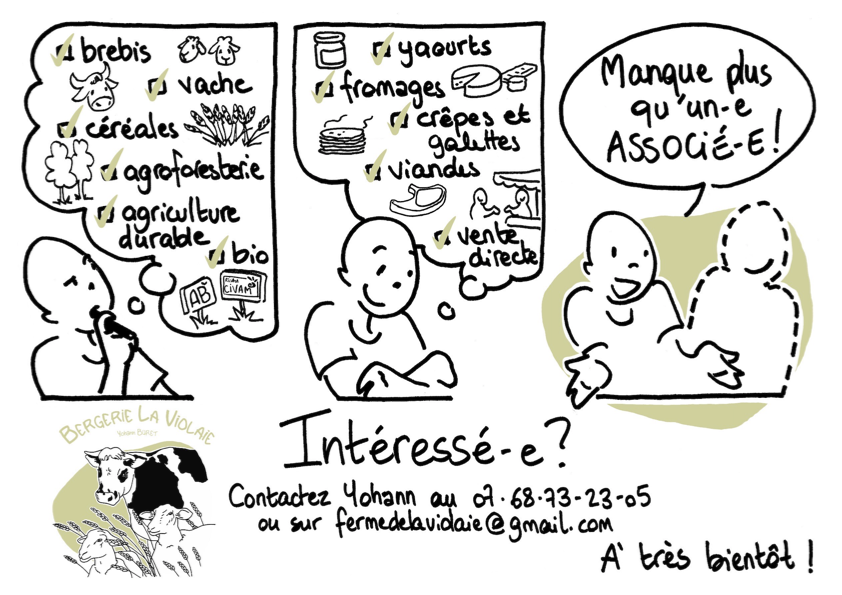 brebis
vache
céréales
agroforesterie
agriculture
durable
bio
AB
CIVAM
yaourts
fromages
crêpes et
galettes
viandes
vente
directe
Manque plus
qu'un-e
ASSOCIÉ-E!
BERGERIE LA VIOLAIE
Intéressé-e?
Contactez Yohann au 07.68-73-23-05
ou sur fermedelaviolaie@gmail.com
A' très bientôt !